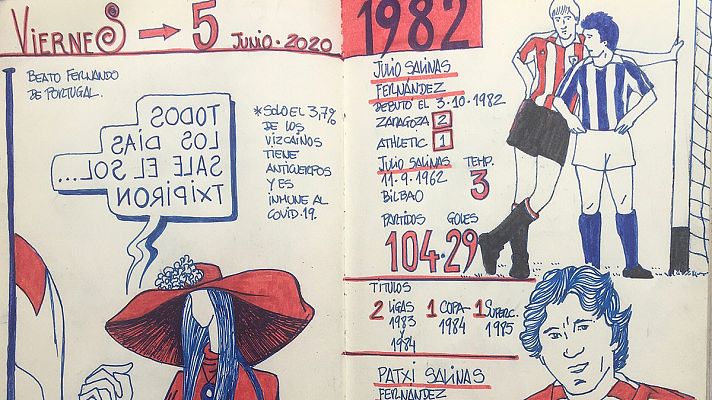 VIERNES → 5 JUNIO·2020
BEATO FERNANDO
DE PORTUGAL.
TODOS
LOS DÍAS
SALE EL SOL...
TXIPIRON
*SOLO EL 3,7%
DE LOS
VIZCAINOS
TIENE
ANTICUERPOS
Y ES
INMUNE AL
COVID-19.
1982
JULIO SALINAS
FERNÁNDEZ
DEBUTÓ EL 3-10-1982
ZARAGOZA 2
ATHLETIC 1
JULIO SALINAS
11-9-1962
BILBAO
TEMP.
3
PARTIDOS GOLES
104·29
TÍTULOS
2 LIGAS
1983
Y
1984
1 COPA-
1984
1 SUPERC.
1985
PATXI SALINAS
FERNÁNDEZ